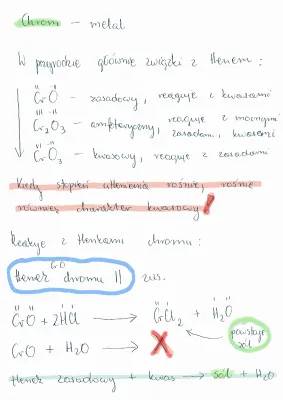 Chrom – metal
W przyrodzie głównie związki z tlenem:
CrO – zasadowy, reaguje z kwasami
Cr₂O₃ – amfoteryczny, reaguje z mocnymi zasadami, kwasami
CrO₃ – kwasowy, reaguje z zasadami
Kiedy stopień utlenienia rośnie, rośnie
również charakter kwasowy!
Reakcje z tlenkami chromu:
CrO
Tlenek chromu II zas.
II II
CrO + 2HCl → CrCl₂ + H₂O
CrO + H₂O → X
powstaje
sól
Tlenek zasadowy + kwas → sól + H₂O